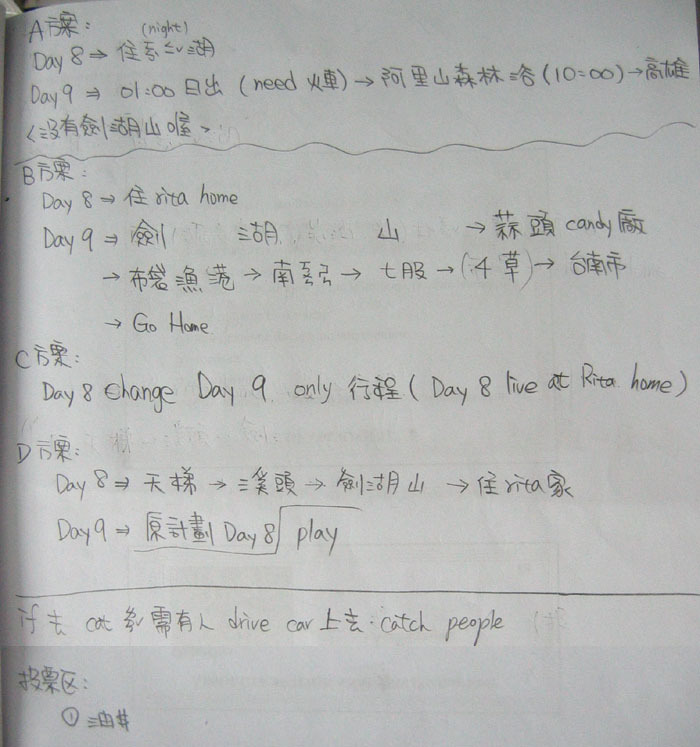 A方案:
(night)
Day 8 ⇒ 住奮起湖
Day 9 ⇒ 01:00 日出 (need 火車) → 阿里山森林浴 (10:00) → 高雄
<沒有劍湖山喔>
B方案:
Day 8 → 住 rita home
Day 9 ⇒ 劍 湖 山 → 蒜頭 candy 廠
→ 布袋漁港 → 南 → 七股 → (4草) → 台南市
→ Go Home
C方案:
Day 8 Change Day 9 only 行程 (Day 8 live at Rita home)
D方案:
Day 8 ⇒ 天梯 → 溪頭 → 劍湖山 → 住rita家
Day 9 ⇒ 原計劃 Day 8 play
if 去 cat 需有人 drive car 上去.catch people
投票区:
① 油井